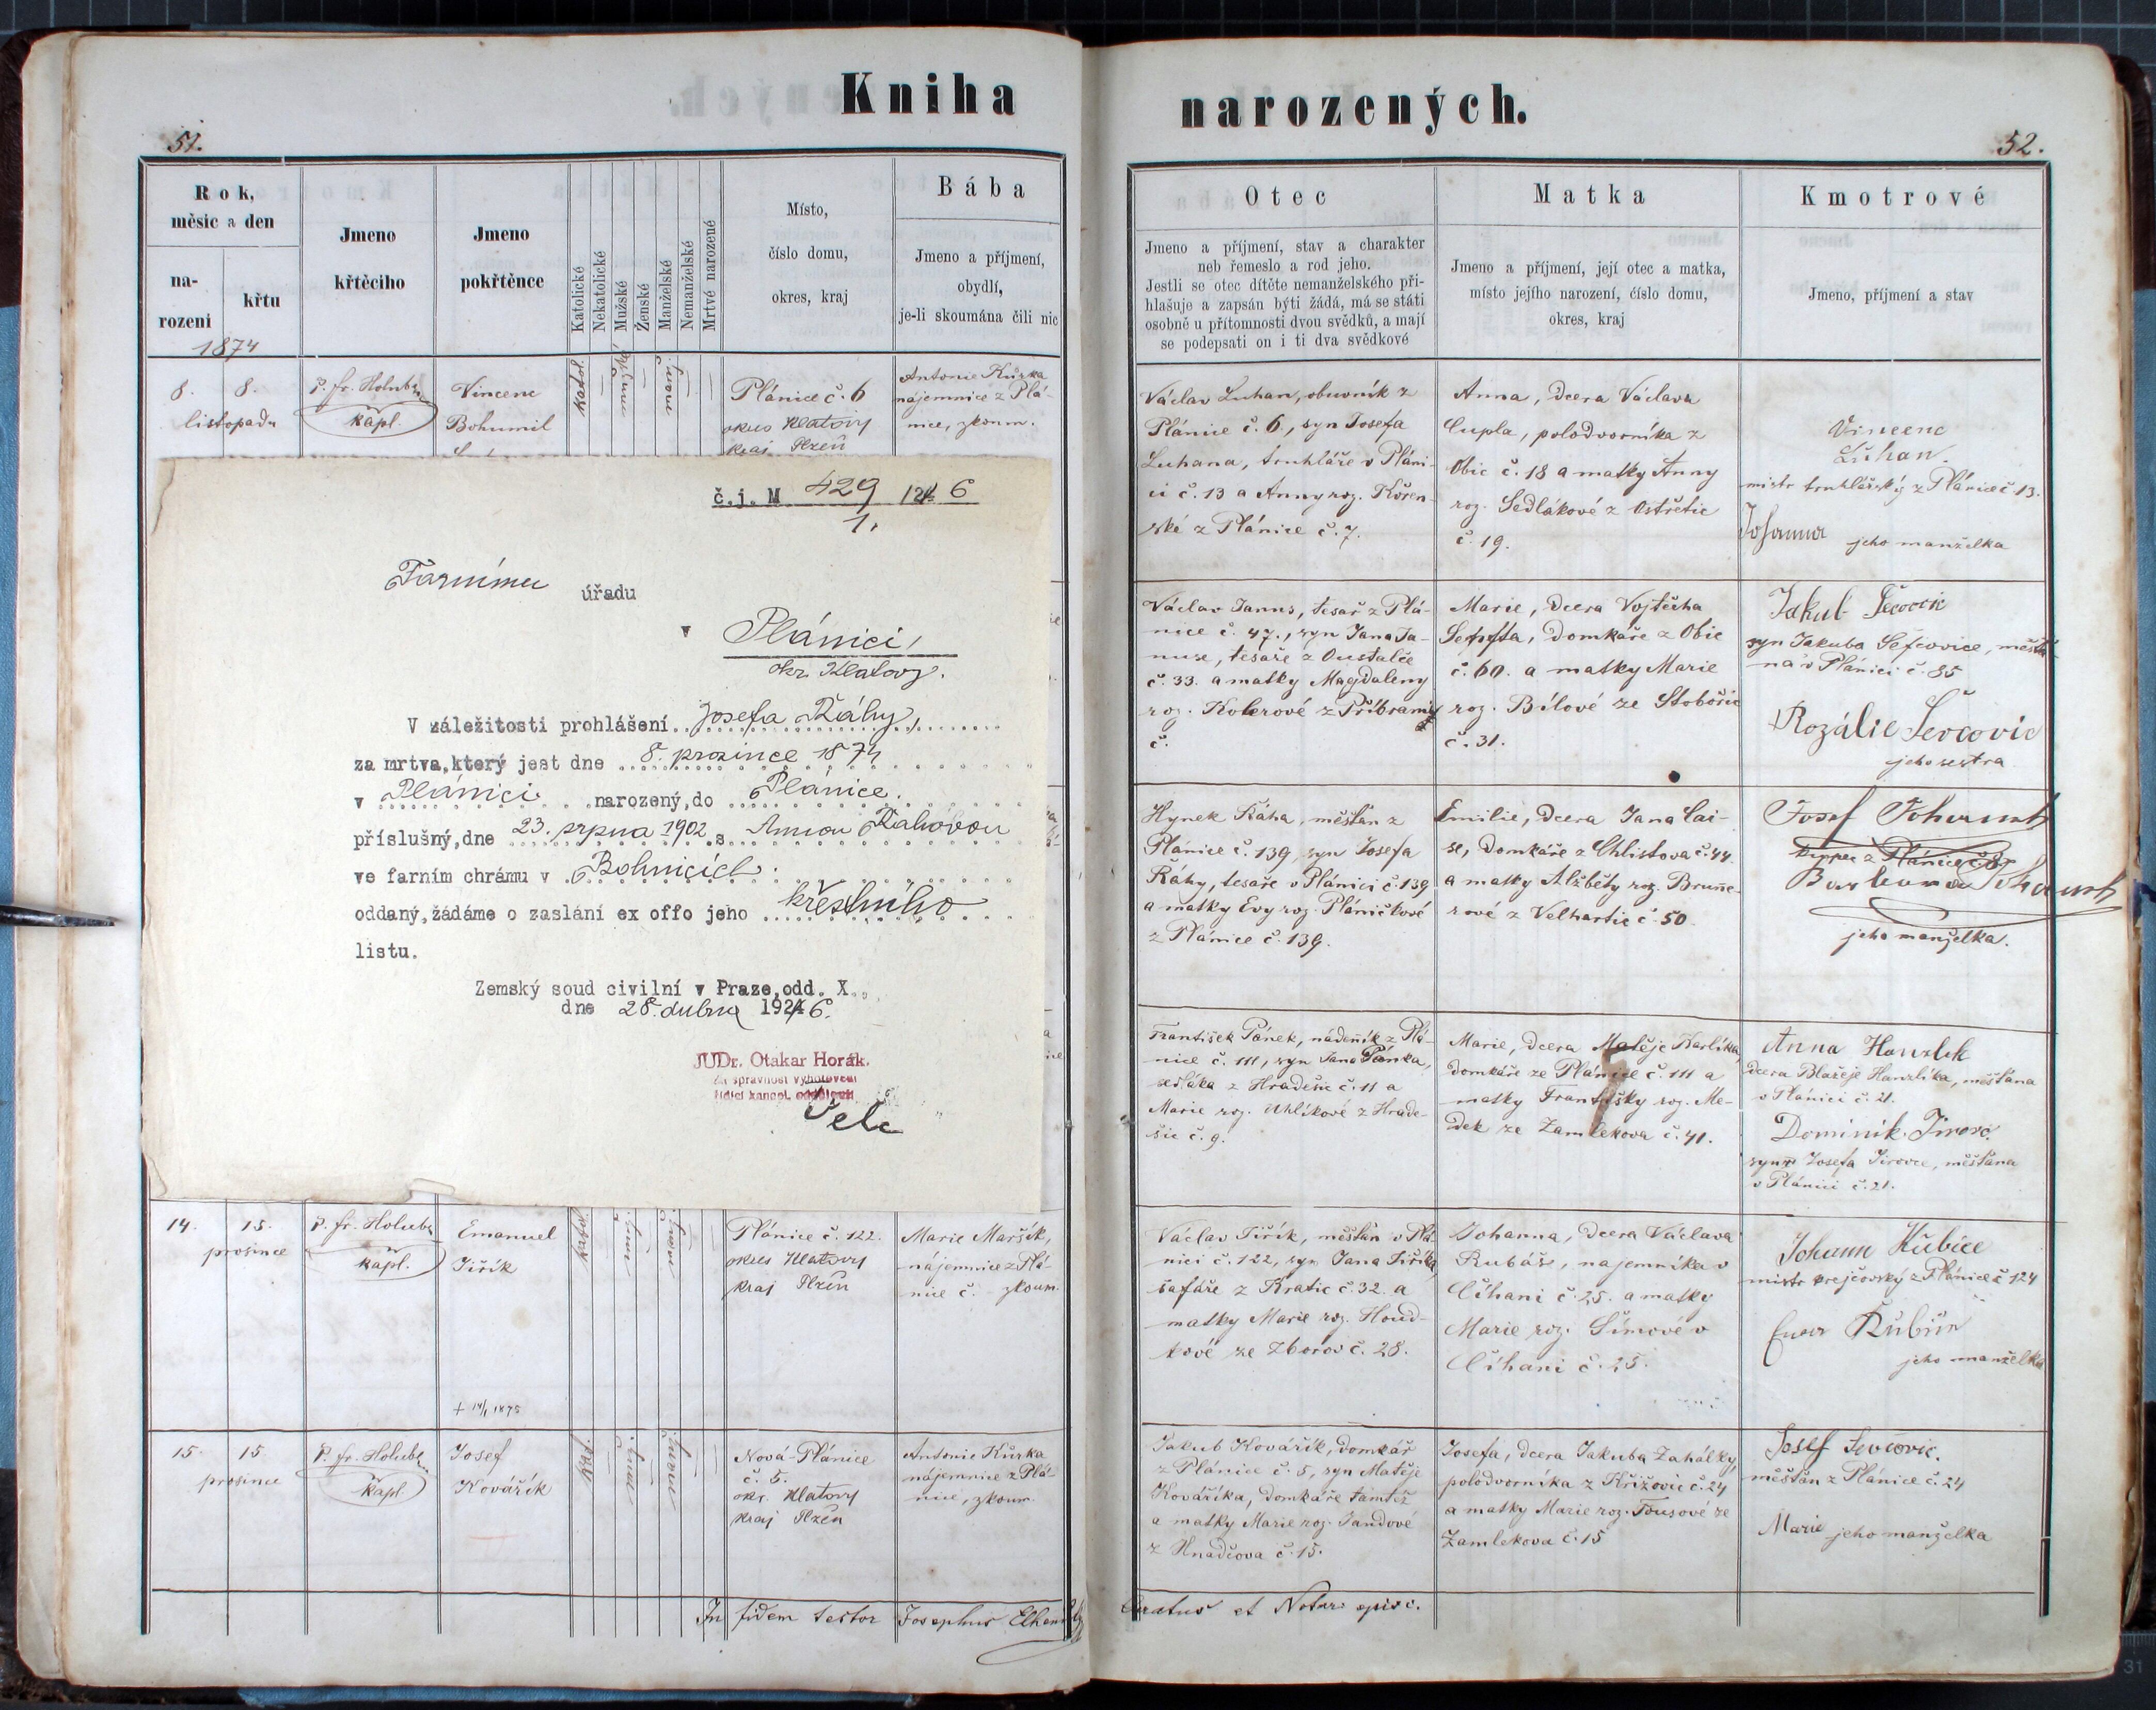 Kniha
narozených.
51.
52.
Rok,
měsíc a den
na-
rozeni
křtu
Jmeno
křtěciho
Jmeno
pokřtěnce
Katolické
Nekatolické
Mužské
Ženské
Manželské
Nemanželské
Mrtvé narozené
Místo,
číslo domu,
okres, kraj
Bába
Jmeno a příjmení,
obydlí,
je-li skoumána čili nic
1874
8. 8.
listopadu
P. fr. Holub
kapl.
Vincenc
Bohumil
katol.
Plánice č. 6
okres Klatovy
kraj Plzeň
Antonie Kůrka
nájemnice z Plá-
nice, zkoum.
č.j. M 429
1.
Farnímu úřadu
v Plánici,
okr. Klatovy.
V záležitosti prohlášení Josefa Ráhy,
za mrtva, který jest dne 8. prosince 1874
v Plánici narozený, do Plánice.
příslušný, dne 23. srpna 1902 s Annou Ráhovou
ve farním chrámu v Bohnicích
oddaný, žádáme o zaslání ex offo jeho křestního
listu.
Zemský soud civilní v Praze, odd. X.,
dne 28. dubna 1926.
JUDr. Otakar Horák.
Za správnost vyhotovení
řídící kancel. oddělení
14. 15.
prosince
P. fr. Holub
kapl.
Emanuel
Jiřík
katol.
Plánice č. 122.
okres Klatovy
kraj Plzeň
Marie Maršík,
nájemnice z Plá-
nice č. - zkoum.
+ 14/1 1875
15. 15.
prosince
P. fr. Holub
kapl.
Josef
Kovářík
kat.
Nová-Plánice
č. 5.
okr. Klatovy
kraj Plzeň
Antonie Kůrka
nájemnice z Plá-
nice, zkoum.
In fidem testor Josephus
Otec
Jmeno a příjmení, stav a charakter
neb řemeslo a rod jeho.
Jestli se otec dítěte nemanželského při-
hlašuje a zapsán býti žádá, má se státi
osobně u přítomnosti dvou svědků, a mají
se podepsati on i ti dva svědkové
Matka
Jmeno a příjmení, její otec a matka,
místo jejího narození, číslo domu,
okres, kraj
Kmotrové
Jmeno, příjmení a stav
Václav Luhan, obuvník z
Plánice č. 6, syn Josefa
Luhana, truhláře v Pláni-
ci č. 13 a Anny roz. Kořen-
ské z Plánice č. 7.
Anna, dcera Václava
Cupla, polodvorníka z
Obic č. 18 a matky Anny
roz. Sedlákové z Ostřetic
č. 19.
Vincenc
Luhan.
mistr truhlářský z Plánice č 13.
Johanna jeho manželka
Václav Janus, tesař z Plá-
nice č. 47., syn Jana Ja-
nuse, tesaře z Oustalče
č. 33. a matky Magdaleny
roz. Kolerové z Příbrami
č.
Marie, dcera Vojtěcha
domkáře z Obic
č. 60. a matky Marie
roz. Bílové ze Stobořic
č. 31.
Jakub
syn Jakuba Šefcovice, měšťa-
na v Plánici č. 85
RozálieŠevcovic
jeho sestra
Hynek Ráha, měšťan z
Plánice č. 139, syn Josefa
Ráhy, tesaře v Plánici č. 139
a matky Evy roz. Pláničkové
z Plánice č. 139.
Emilie, dcera Jana Cai-
se, domkáře z Chlistova č. 44
a matky Alžběty roz. Brune-
rové z Velhartic č. 50.
Josef
Barbora
jeho manželka.
František Pánek, nádeník z Plá-
nice č. 111, syn Jana Pánka,
sedláka z Hradešic č. 11 a
Marie roz. Uhlíkové z Hrade-
šic č. 9.
Marie, dcera Matěje Karlíka,
domkáře ze Plánice č. 111 a
matky Františky roz. Me-
dek ze Zamlekova č. 41.
Anna Hanzlik
dcera Blažeje Hanzlíka, měšťana
v Plánici č. 21.
Dominik Jirovc.
syn Josefa Jirovce, měšťana
v Plánici č. 21.
Václav Jiřík, měšťan v Plá-
nici č. 122, syn Jana Jiříka,
šafáře z Kratic č. 32. a
matky Marie roz. Houd-
kové ze Zborov č. 28.
Johanna, dcera Václava
Rubáše, najemníka v
Číhani č. 25. a matky
Marie roz. Šímové v
Číhani č. 25.
Johann Kubice
mistr krejčovský z Plánice č 124
jeho manželka
Jakub Kovářík, domkář
z Plánice č. 5, syn Matěje
Kováříka, domkáře tamtéž
a matky Marie roz. Jandové
z Hnačova č. 15.
Josefa, dcera Jakuba Zahálky,
polodvorníka z Křižovic č. 24
a matky Marie roz. Tousové ze
Zamlekova č. 15
Josef Ševčovic.
měšťan z Plánice č. 24
Marie jeho manželka
31